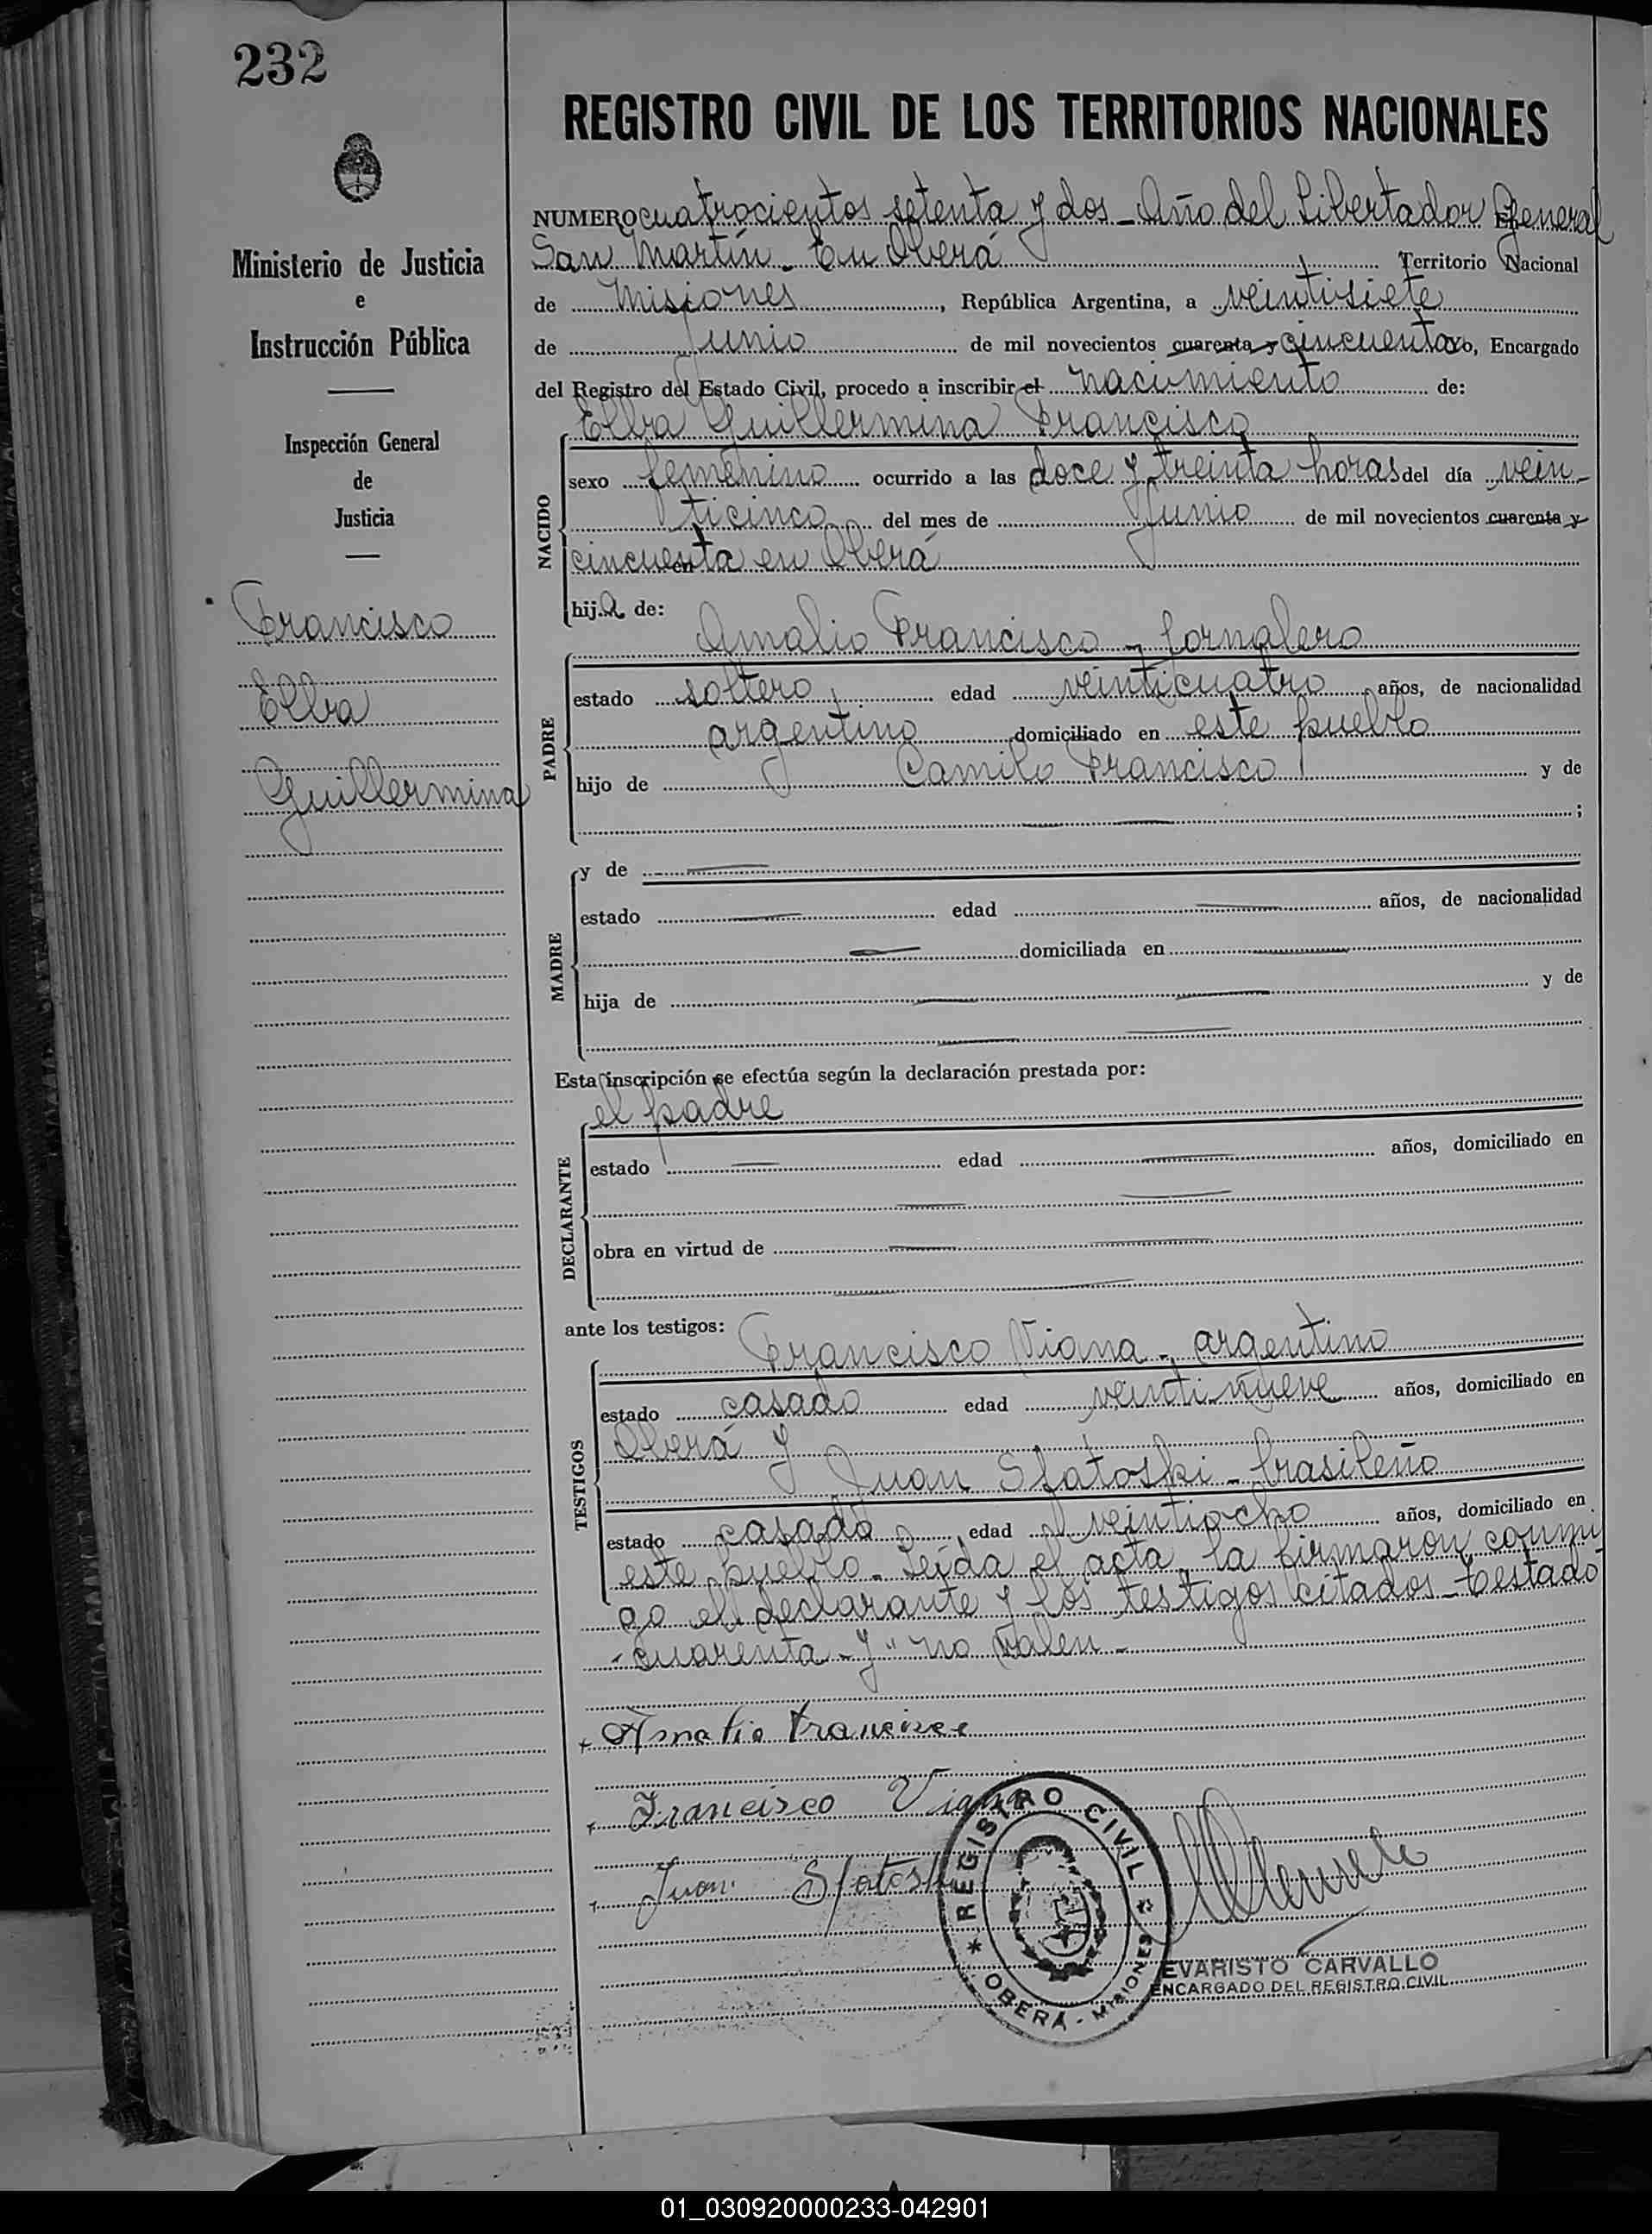 232
REGISTRO CIVIL DE LOS TERRITORIOS NACIONALES
Ministerio de Justicia
e
Instrucción Pública
Inspección General
de
Justicia
Francisco
Elba
Guillermina
NUMERO cuatrocientos setenta y dos - Año del Libertador General
San Martín - En Oberá Territorio Nacional
de Misiones, República Argentina, a veintisiete
de Junio de mil novecientos cuarenta y cincuenta yo, Encargado
del Registro del Estado Civil, procedo a inscribir el nacimiento de:
Elba Guillermina Francisco
NACIDO
sexo femenino ocurrido a las doce y treinta horas del día vein-
ticinco del mes de Junio de mil novecientos cuarenta y
cincuenta en Oberá
hija de:
Amalio Francisco - Jornalero
PADRE
estado soltero edad veinticuatro años, de nacionalidad
argentino domiciliado en este pueblo
hijo de Camilo Francisco y de
;
MADRE
y de
estado edad años, de nacionalidad
domiciliada en
hija de y de
Esta inscripción se efectúa según la declaración prestada por:
el padre
DECLARANTE
estado edad años, domiciliado en
obra en virtud de
ante los testigos:
Francisco Viana - argentino
TESTIGOS
estado casado edad veintinueve años, domiciliado en
Oberá y
Juan Sfatoski - brasileño
estado casado edad veintiocho años, domiciliado en
este pueblo. Leída el acta, la firmaron conmi
go el declarante y los testigos citados - testado
-cuarenta - y" no valen -
Amalio Francisco
Francisco Viana
Juan Sfatoski
REGISTRO CIVIL
OBERÁ - MISIONES
EVARISTO CARVALLO
ENCARGADO DEL REGISTRO CIVIL
01_030920000233-042901